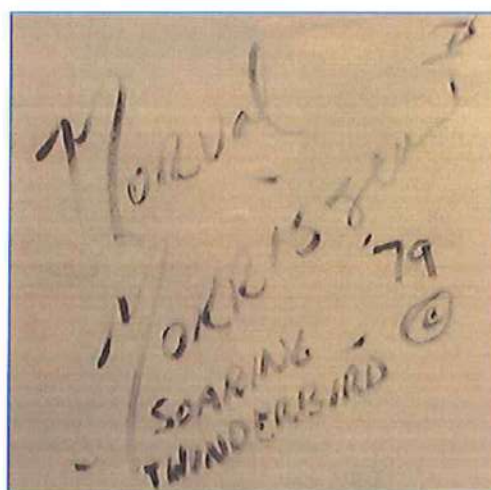 Norval
Morrisseau
'79 ©
SOARING
THUNDERBIRD